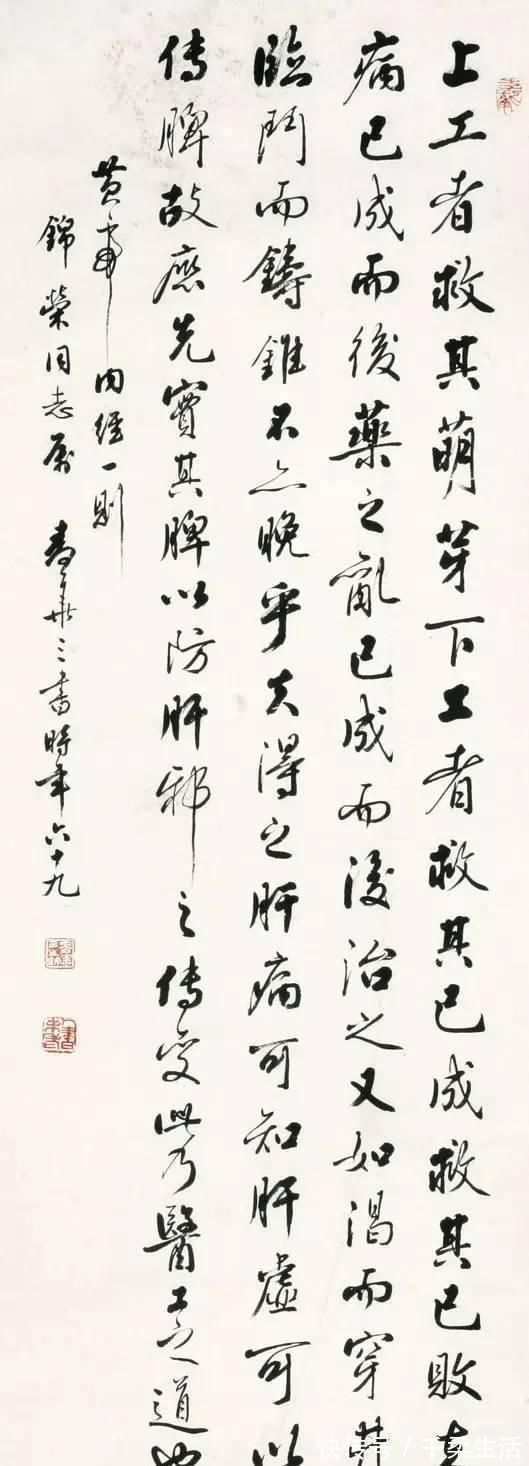 上工者救其萌芽下工者救其已成救其已敗
病已成而後藥之亂已成而後治之又如渴而穿
臨鬥而鑄錐不亦晚乎夫得之肝病可知肝虛可以
傳脾故應先實其脾以防肝邪之傳变此乃醫工之道也
黄帝内經一則
錦榮同志屬 書時年六十九
快传号/千柔生活